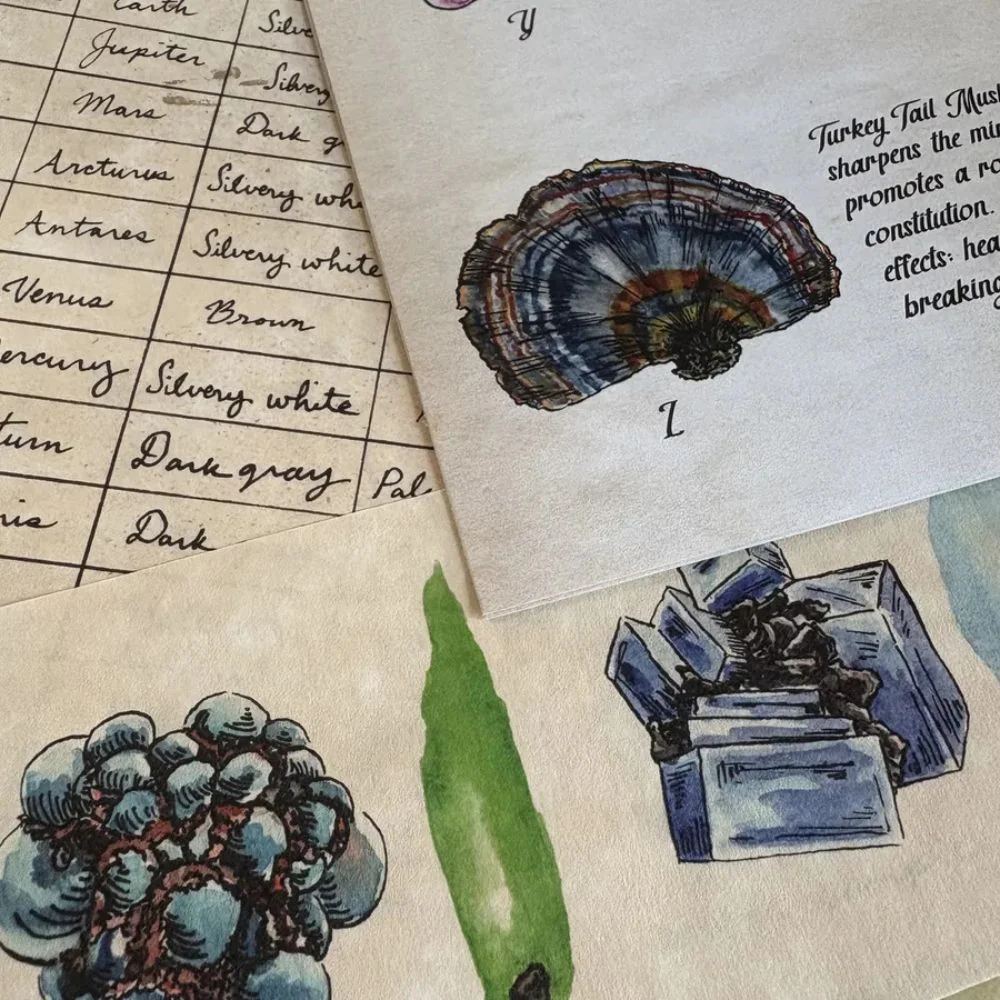 Earth Silve
Jupiter Silvery
Mars Dark g
Arcturus Silvery whi
Antares Silvery white
Venus Brown
ercury Silvery white
turn Dark gray Pal
ris Dark
Y
Turkey Tail Mush
sharpens the min
promotes a ro
constitution.
effects: hea
breaking
Z